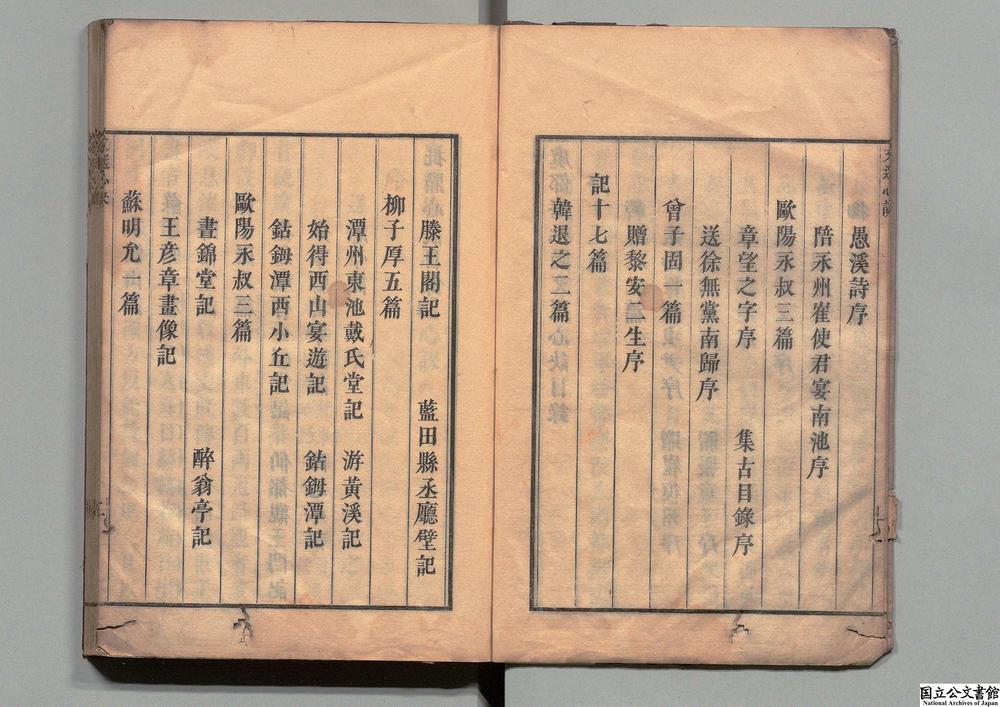 愚溪詩序
陪永州崔使君宴南池序
歐陽永叔三篇
章望之字序 集古目錄序
送徐無黨南歸序
曾子固一篇
贈黎安二生序
記十七篇
韓退之二篇
滕王閣記 藍田縣丞廳壁記
柳子厚五篇
潭州東池戴氏堂記 游黃溪記
始得西山宴遊記 鈷鉧潭記
鈷鉧潭西小丘記
歐陽永叔三篇
晝錦堂記 醉翁亭記
王彥章畫像記
蘇明允一篇
国立公文書館
National Archives of Japan